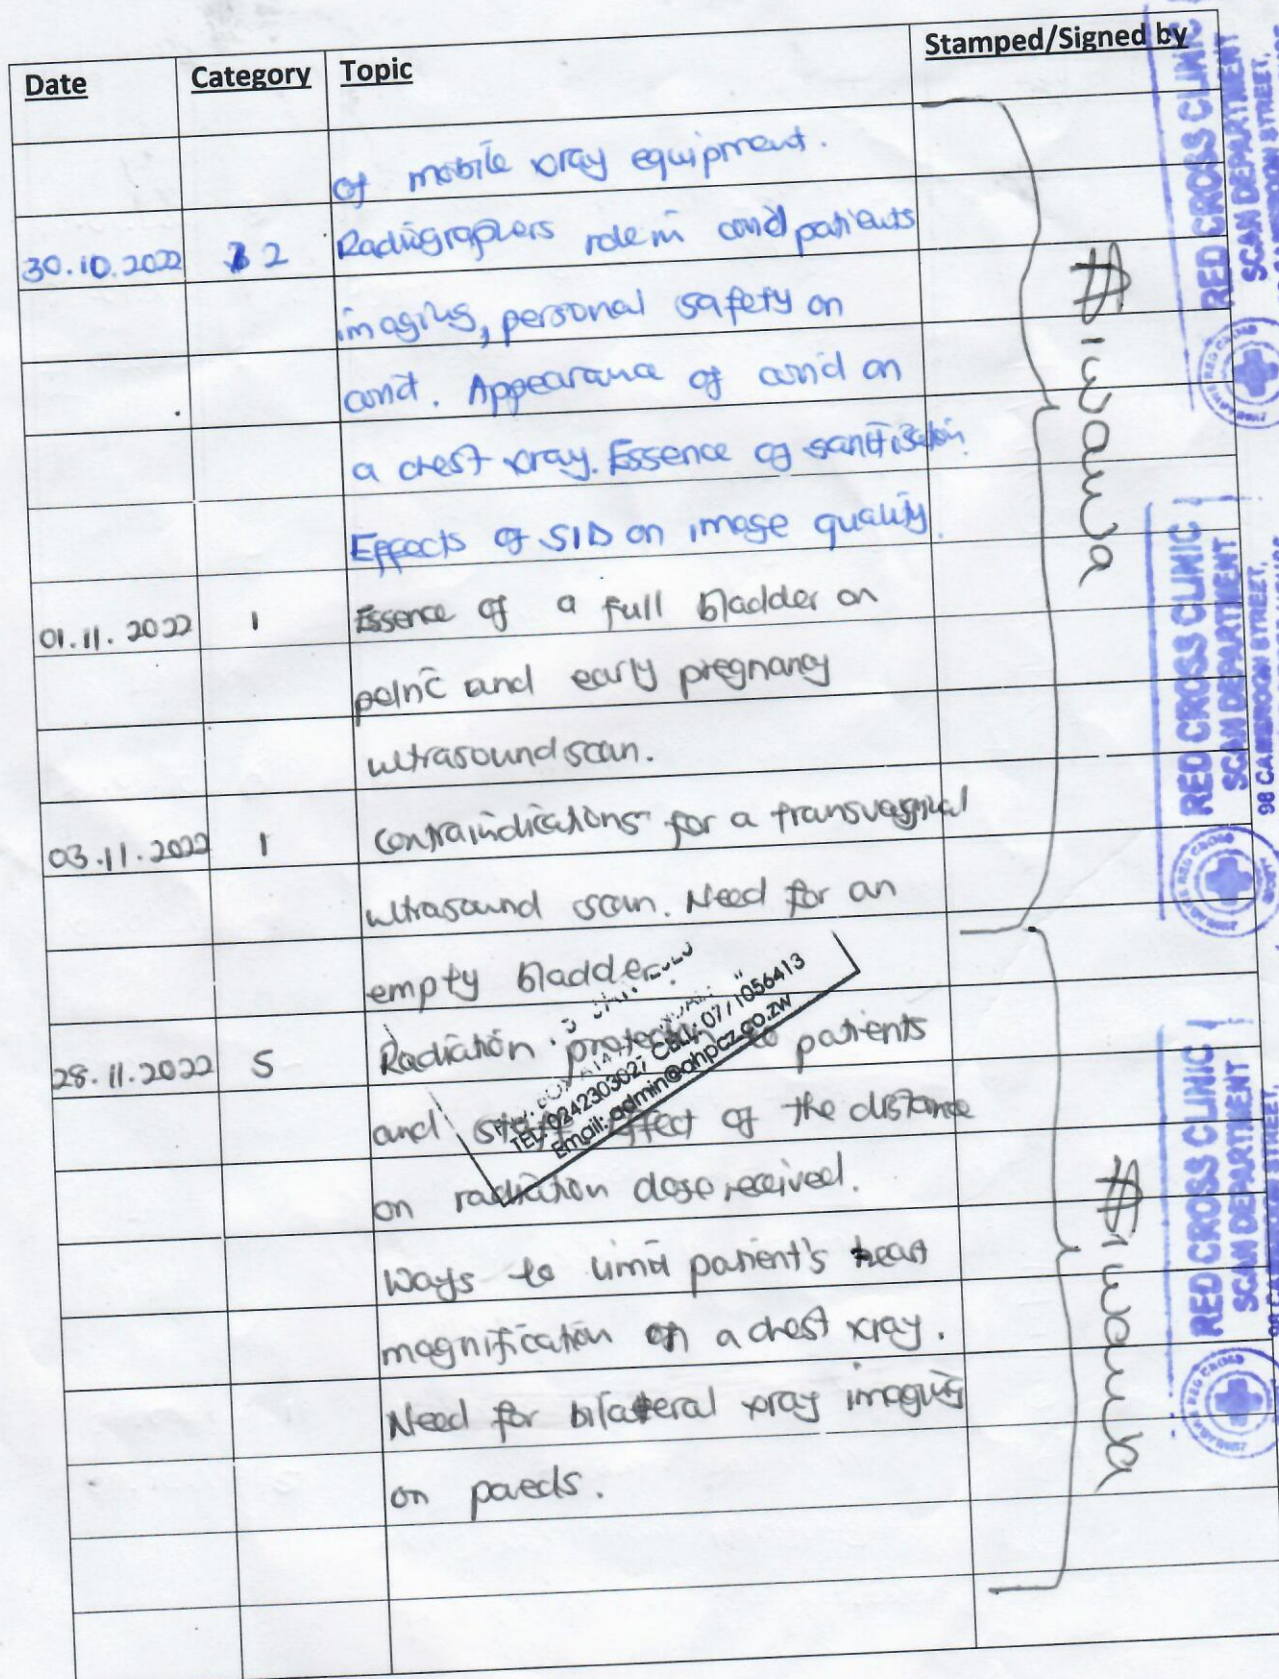 Date Category Topic Stamped/Signed by
of mobile xray equipment.
30.10.2022 2 Radiographers role in covid patients
imaging, personal safety on
covid. Appearance of covid on
a chest xray. Essence of sanitisation.
Effects of SID on image quality.
01.11.2022 1 Essence of a full bladder on
pelvic and early pregnancy
ultrasound scan.
03.11.2022 1 Contraindications for a transvaginal
ultrasound scan. Need for an
empty bladder.
28.11.2022 5 Radiation protection to patients
and effect of the distance
on radiation dose received.
Ways to limit patient's heart
magnification on a chest xray.
Need for bilateral xray imaging
on paeds.
TEL: 0242303027 CELL: 0771056413
Email: admin@ahpcz.co.zw
RED CROSS CLINIC
SCAN DEPARTMENT
RED CROSS CLINIC
SCAN DEPARTMENT
98 CAMEROON STREET,
RED CROSS CLINIC
SCAN DEPARTMENT